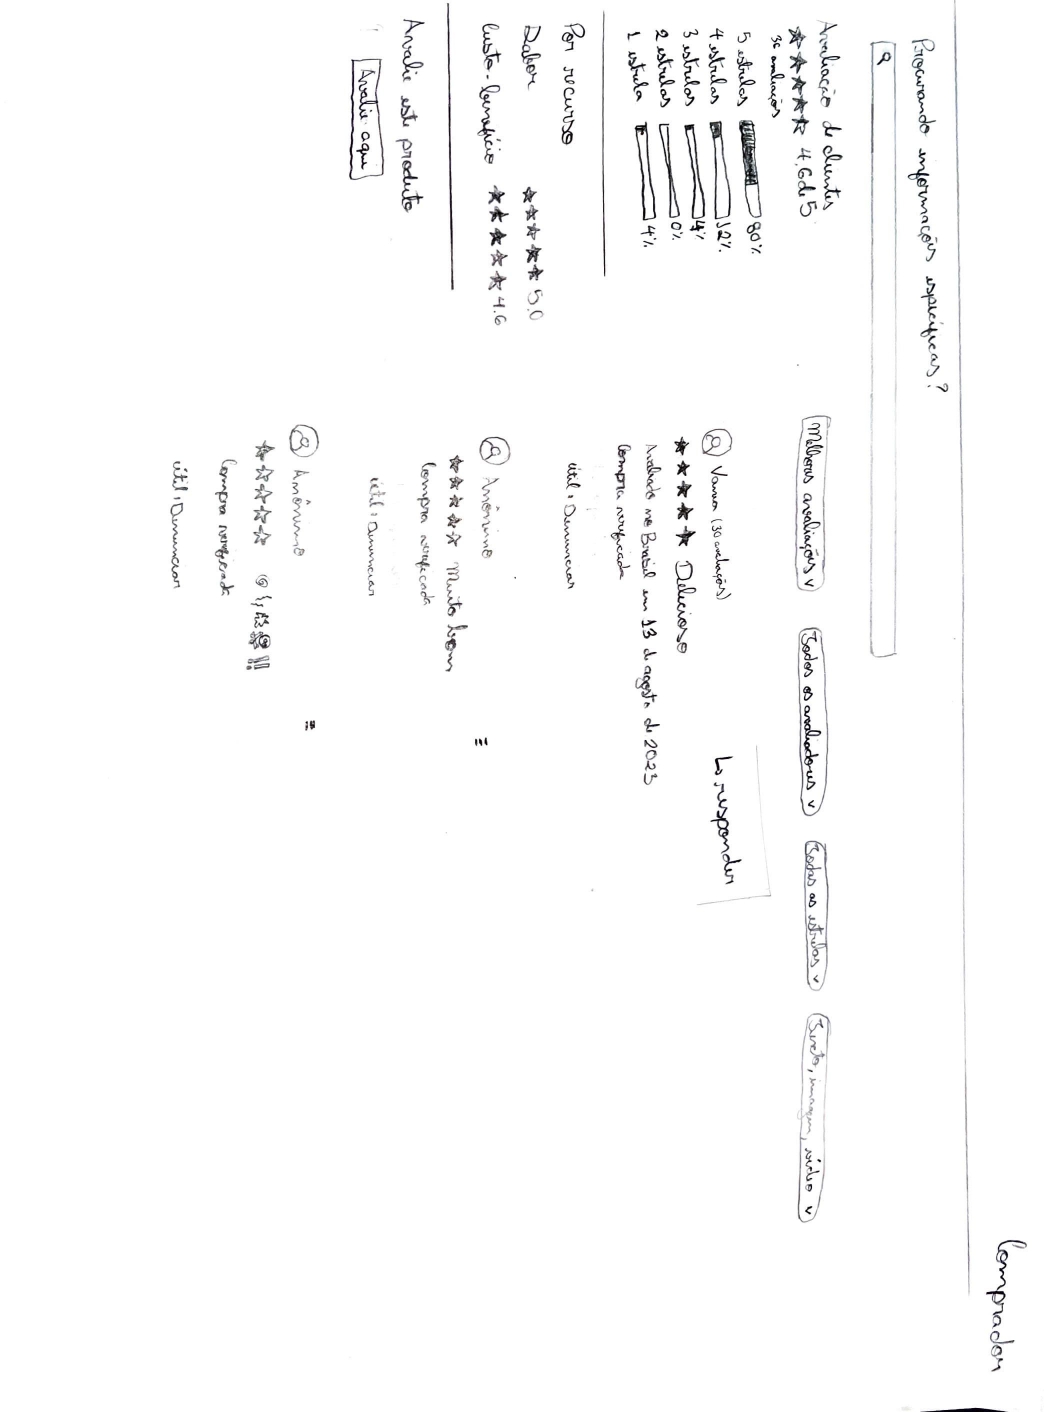 Comprador
Procurando informações específicas?
Avaliação de clientes
4.6 de 5
30 avaliações
5 estrelas 80%
4 estrelas 12%
3 estrelas 4%
2 estrelas 0%
1 estrela 4%
Por recurso
Sabor 5.0
Custo-benefício 4.6
Avalie este produto
Avalie aqui
Melhores avaliações v
Todos os avaliadores v
Todas as estrelas v
Texto, imagem, vídeo v
(30 avaliações)
Delicioso
Avaliado no Brasil em 13 de agosto de 2023
Compra verificada
útil | Denunciar
↳ responder
Anônimo
Muito bom
Compra verificada
útil | Denunciar
Anônimo
Compra verificada
útil | Denunciar